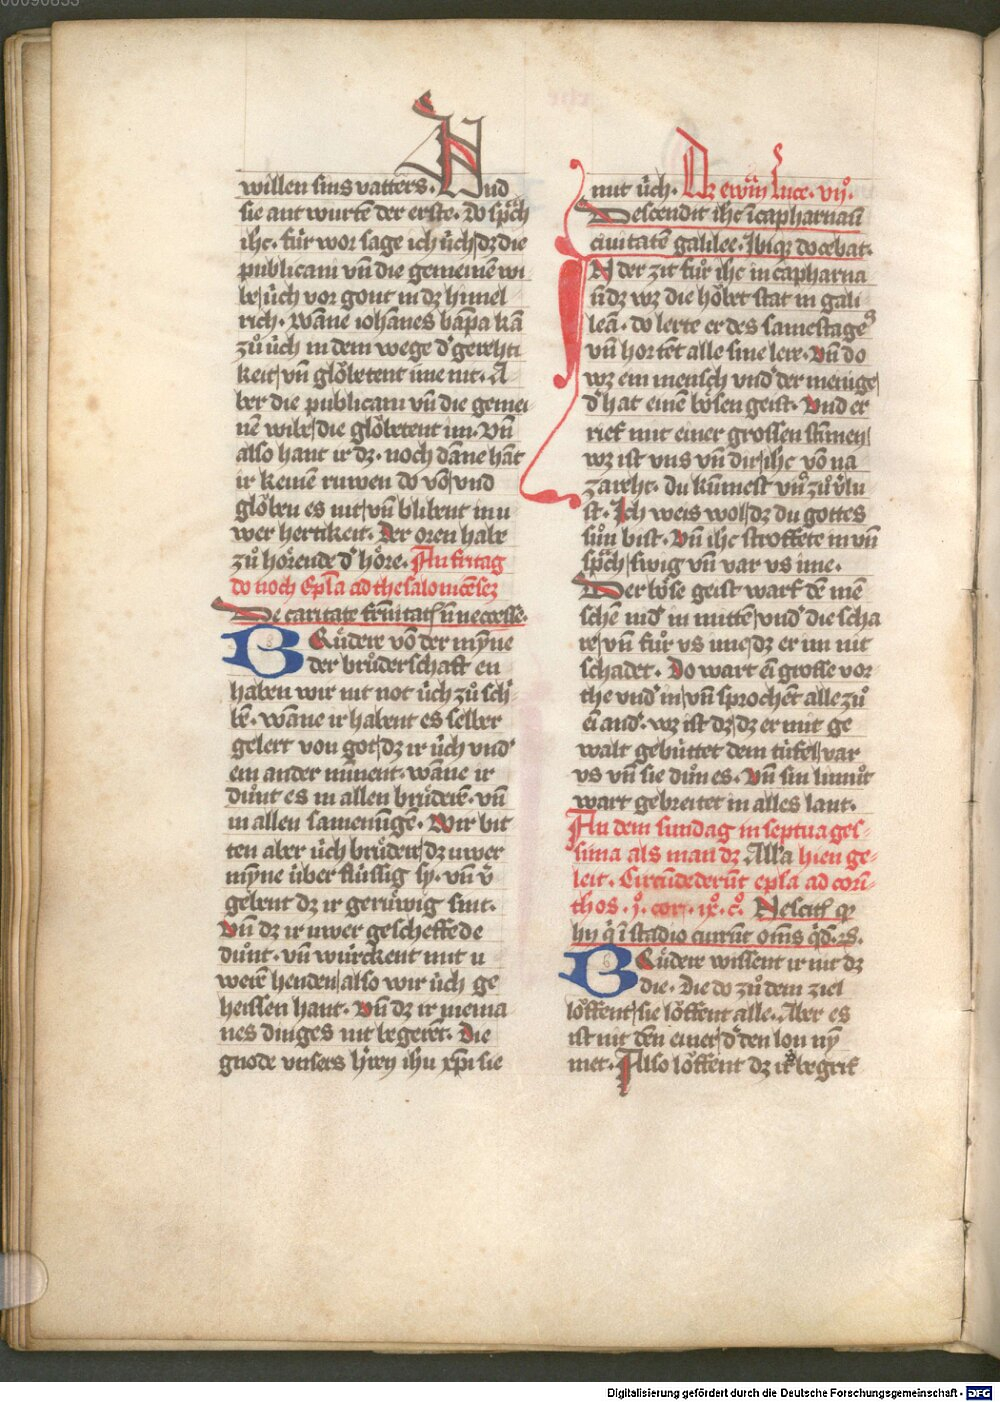 willen sins vatters. Und
sie antwurtē der erste. do sp̄ch
ihc. für wor sage ich üch dz die
publicani vn̄ die gemeinen wi
be üch vor gont in dz himel
rich. Wāne iohānes bap̄a kā
zů üch in dem wege d' gerehti
keit vn̄ glöbetent ime nit. A
ber die publicani vn̄ die gemei
nē wibe die glöbetent im. Vn̄
also hant ir dz. noch dāne hāt
ir keinē ruwen do vō vnd
glöben es nit vn̄ blibent in u
wer hertikeit. Der oren habe
zů hörende d' höre. An fritag
do noch Epl̄a ad thesalonicēsez
De caritate
Brüdere vō der mȳne
der brůderschaft en
haben wir nit not üch zů sch'i
bē. wāne ir habent es selber
gelert von got dz ir üch vnd'
ein ander minent. wāne ir
důnt es in allen brüderē. vn̄
in allen samenūgē. Wir bit
ten aber üch brüder dz uwer
mȳne über flüssig sy. vn̄ v̄
gebent dz ir gerüwig sint.
Vn̄ dz ir uwer gescheffede
důnt. vn̄ würckent mit u
werē henden also wir üch ge
heissen hant. Vn̄ dz ir niema
nes dinges nit begerēt. Die
gnode vnsers h'ren ihu xp̄i sie
mit üch. Dz ewāi Luce. vij.
Descendit ihc ī capharnaū
ciuitatē galilee. Ibiq; docebat.
IN der zit fůr ihc in capharna
ū dz wz die höbet stat in gali
leā. do lerte er des samestages
vn̄ hortēt alle sine lere. Vn̄ do
wz ein mensch vnd' der menige
d' hat einē bösen geist. Vnd er
rief mit einer grossen stīmen
wz ist vns vn̄ dir ihc vō na
zareht. du kūmest vn̄ zů v̄lu
st. Ich weis wol dz du gottes
sůn bist. Vn̄ ihc stroffete in vn̄
sp̄ch swig vn̄ var vs ime.
Der böse geist warf dē mē
schē nid' in mitten vnd' die scha
re vn̄ fůr vs ime dz er im nit
schadet. Do wart ei grosse vor
the vnd' in vn̄ sprochēt alle zů
ei and'. wz ist dz dz er mit ge
walt gebüttet dem tüfel var
vs vn̄ sie důn es. Vn̄ sin limůt
wart gebreitet in alles lant.
An dem sundag in septuages-
sima als man dz All'a hien ge-
leit. Circūdederūt epl̄a ad corī-
thos. j. cor. ix. c. Nescitis q
hij q̄ ī stadio currūt om̄s
Brüdere wissent ir nit dz
die. Die do zů dem ziel
löffent sie löffent alle. Aber es
ist nit dēn einer d' den lon nȳ
met. Also löffent dz ir begrif
Digitalisierung gefördert durch die Deutsche Forschungsgemeinschaft - DFG